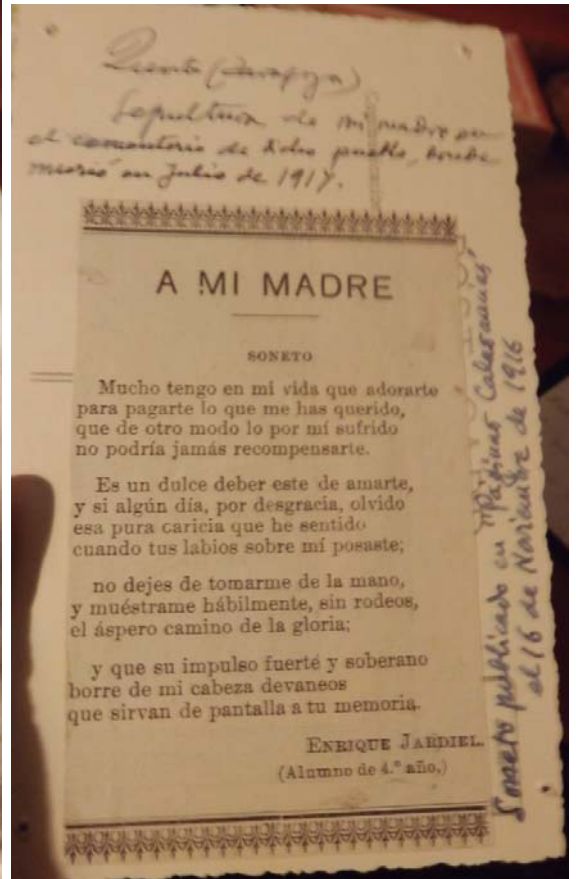 Quinto (Zaragoza)
Sepultura de mi madre en
el cementerio de dicho pueblo, donde
murió en Julio de 1917.
A MI MADRE
SONETO
Mucho tengo en mi vida que adorarte
para pagarte lo que me has querido,
que de otro modo lo por mí sufrido
no podría jamás recompensarte.
Es un dulce deber este de amarte,
y si algún día, por desgracia, olvido
esa pura caricia que he sentido
cuando tus labios sobre mí posaste;
no dejes de tomarme de la mano,
y muéstrame hábilmente, sin rodeos,
el áspero camino de la gloria;
y que su impulso fuerte y soberano
borre de mi cabeza devaneos
que sirvan de pantalla a tu memoria.
ENRIQUE JARDIEL.
(Alumno de 4.º año,)
Soneto publicado en "Páginas Calasancias"
el 16 de Noviembre de 1916